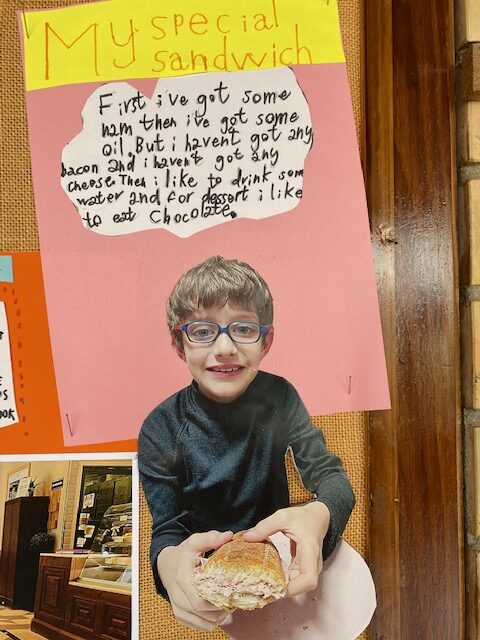 My special
sandwich
First i've got some
ham then i've got some
oil, But i havent got any
bacon and i havent got any
cheese. Then i like to drink som
water and for dessort i like
to eat Chocolate.